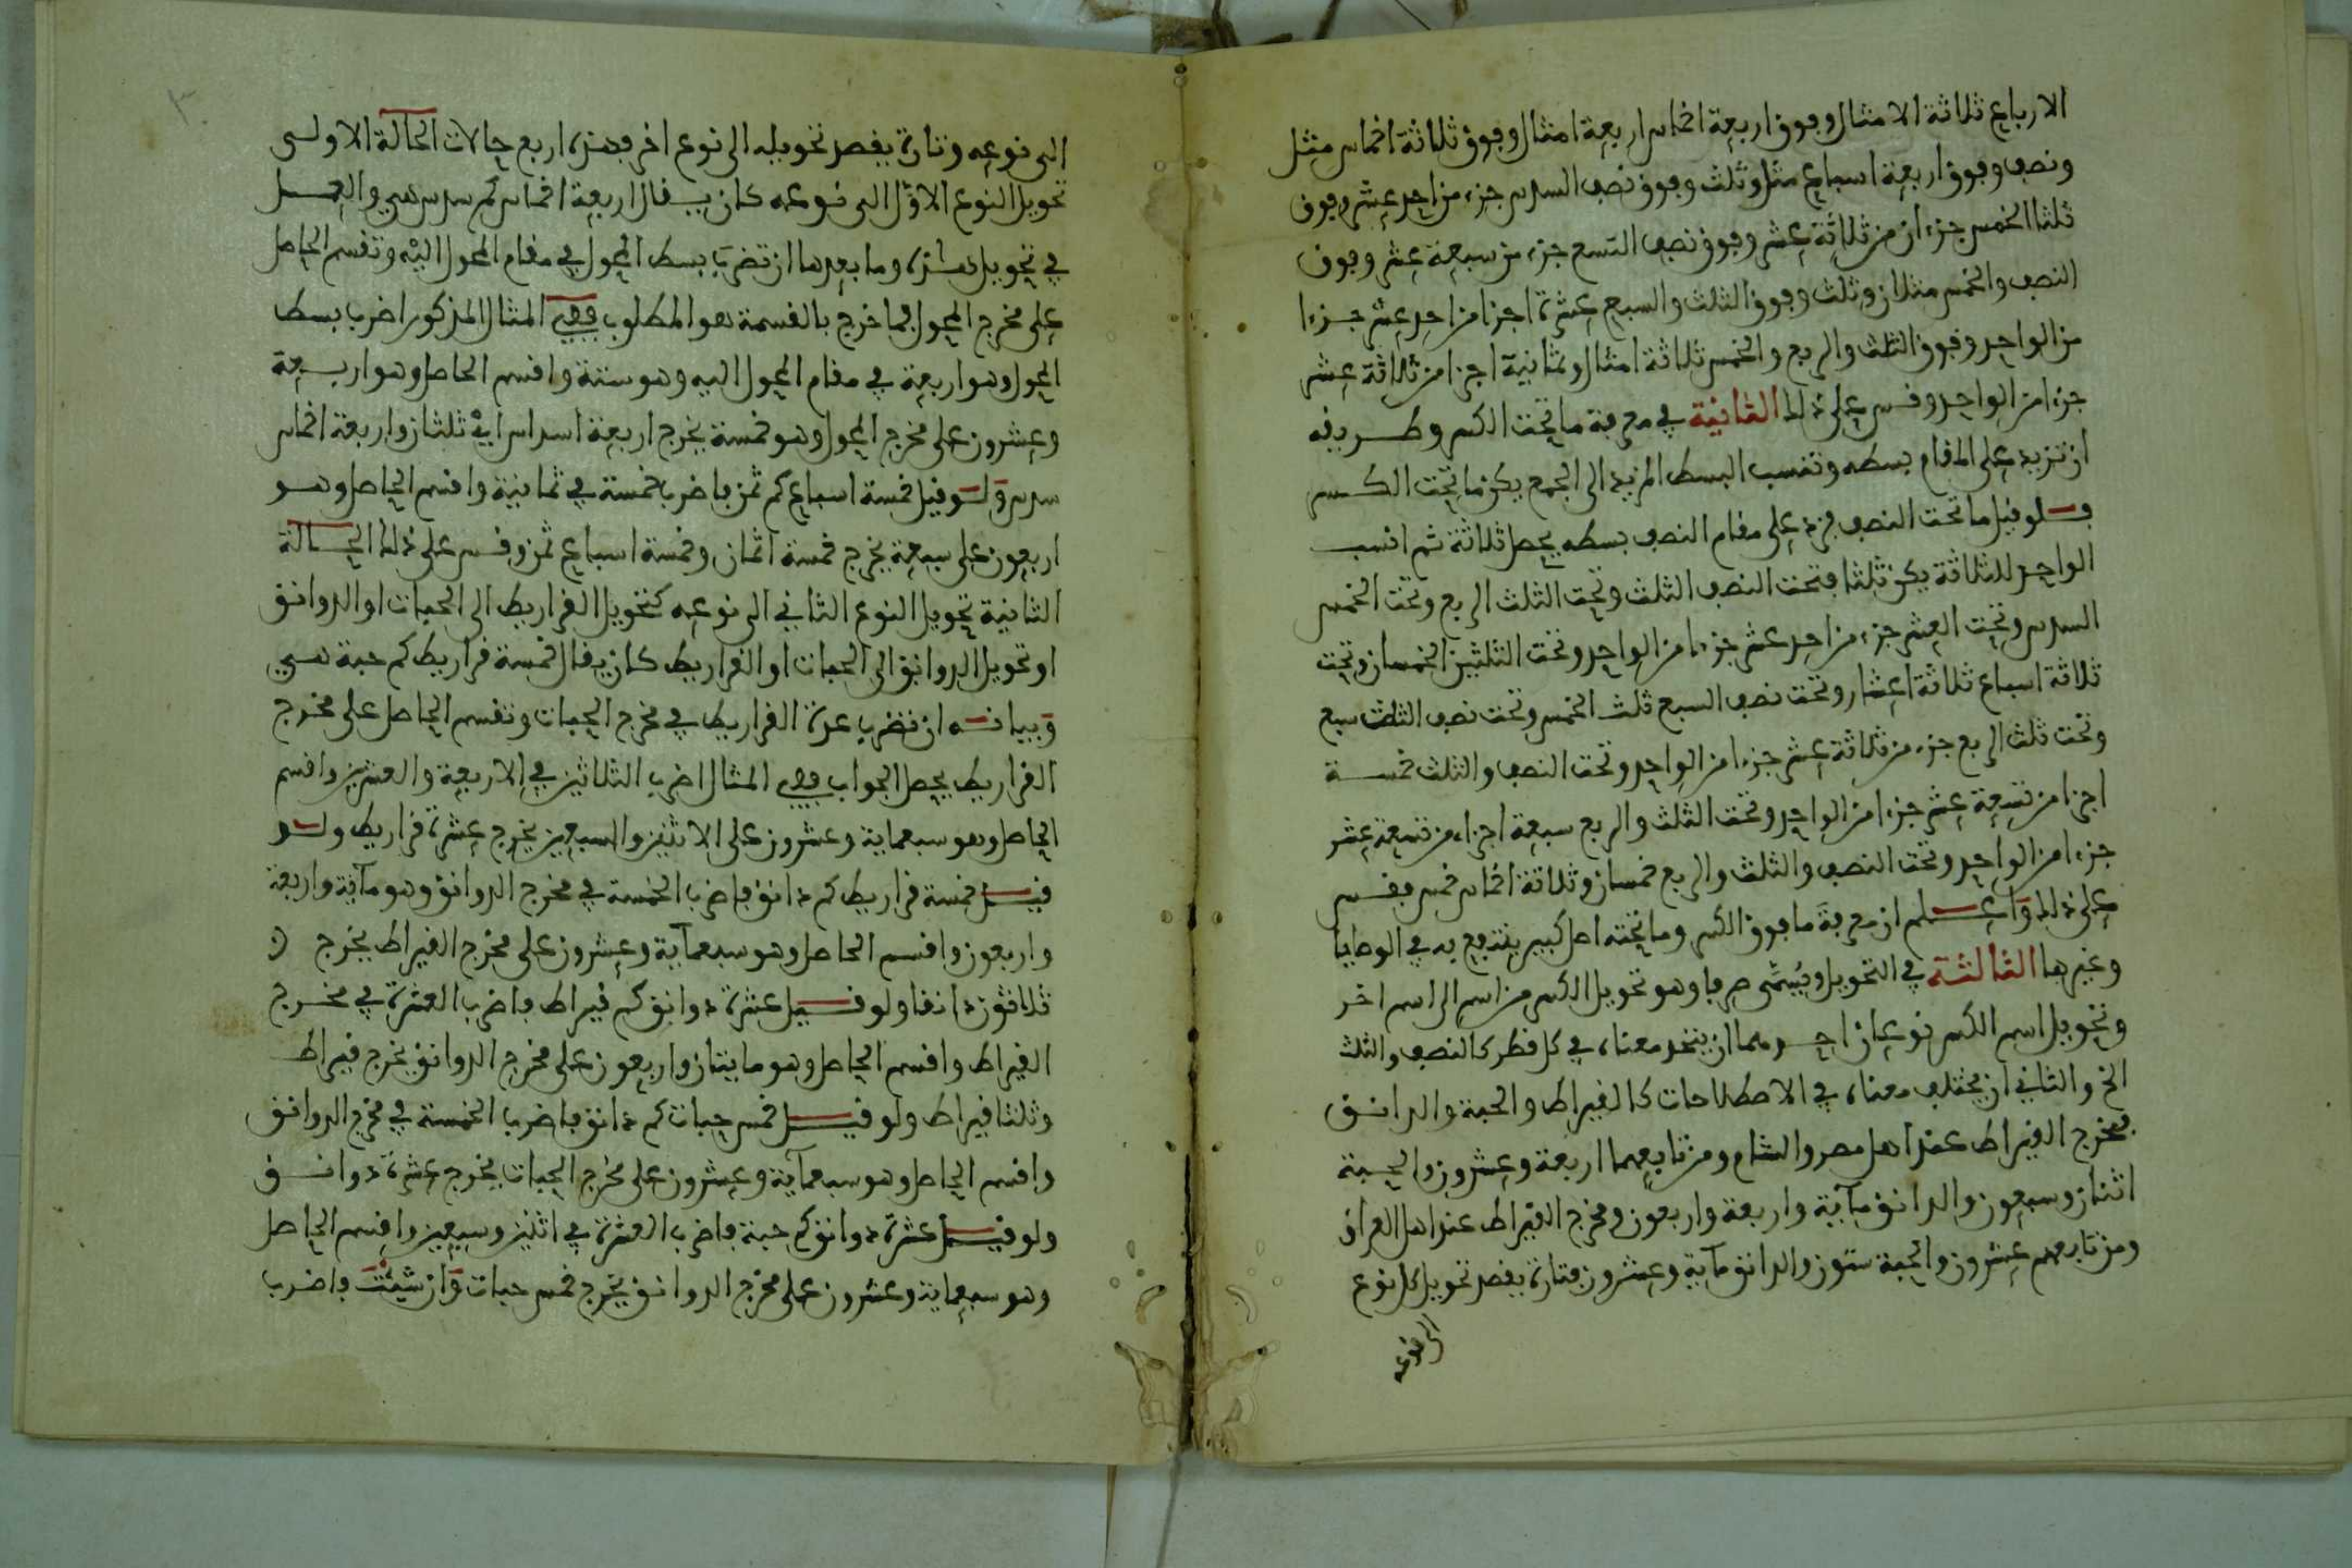 الارباع ثلاثة الامثال وفوق اربعة اخماس اربعة امثال وفوق ثلاثة اخماس مثل
ونصف وفوق اربعة اسباع مثل وثلث وفوق نصف السدس جزء من احد عشر وفوق
ثلثا الخمس جزءان من ثلاثة عشر وفوق نصف التسع جزء من سبعة عشر وفوق
النصف والخمس مثلان وثلث وفوق الثلث والسبع عشرة اجزا من احد عشر جزءا
من الواحد وفوق الثلث والربع والخمس ثلاثة امثال وثمانية اجزا من ثلاثة عشر
جزءا من الواحد وقس على ذلك الثانية في معرفة ما تحت الكسر وطريقه
ان تزيد على المقام بسطه وتنسب البسط المزيد الى الجمع يكن ما تحت الكسر
فلو قيل ما تحت النصف فزد على مقام النصف بسطه يحصل ثلاثة ثم انسب
الواحد للثلاثة يكن ثلثا فتحت النصف الثلث وتحت الثلث الربع وتحت الخمس
السدس وتحت العشر جزء من احد عشر جزءا من الواحد وتحت الثلثين الخمسان وتحت
ثلاثة اسباع ثلاثة اعشار وتحت نصف السبع ثلث الخمس وتحت نصف الثلث سبع
وتحت ثلث الربع جزء من ثلاثة عشر جزءا من الواحد وتحت النصف والثلث خمسة
اجزا من تسعة عشر جزءا من الواحد وتحت الثلث والربع سبعة اجزاء من تسعة عشر
جزءا من الواحد وتحت النصف والثلث والربع خمسان وثلاثة اخماس خمس فقس
على ذلك واعلم ان معرفة ما فوق الكسر وما تحته اصل كبير ينتفع به في الوصايا
وغيرها الثالثة في التحويل ويسمى صرفا وهو تحويل الكسر من اسم الى اسم اخر
وتحويل اسم الكسر نوعان احدهما ان يتحد معناه في كل قطر كالنصف والثلث
الخ والثاني ان يختلف معناه في الاصطلاحات كالقيراط والحبة والدانق
فمخرج القيراط عند اهل مصر والشام ومن تابعهما اربعة وعشرون والحبة
اثنان وسبعون والدانق مآية واربعة واربعون ومخرج القيراط عند اهل العراق
ومن تابعهم عشرون والحبة ستون والدانق مآية وعشرون فتارة يقصد تحويل كل نوع
الى نوعه
الى نوعه وتارة يقصد تحويله الى نوع اخر فهذه اربع حالات الحالة الاولى
تحويل النوع الاول الى نوعه كان يقال اربعة اخماس كم سدس هي والعمل
في تحويل هذه وما بعدها ان تضرب بسط المحول في مقام المحول اليه وتقسم الحاصل
على مخرج المحول فما خرج بالقسمة هو المطلوب ففي المثال المذكور اضرب بسط
المحول وهو اربعة في مقام المحول اليه وهو ستة واقسم الحاصل وهو اربعة
وعشرون على مخرج المحول وهو خمسة يخرج اربعة اسداس اي ثلثان واربعة اخماس
سدس ولو قيل خمسة اسباع كم ثمن فاضرب خمسة في ثمانية واقسم الحاصل وهو
اربعون على سبعة يخرج خمسة اثمان وخمسة اسباع ثمن وقس على ذلك الحالة
الثانية تحويل النوع الثاني الى نوعه كتحويل القراريط الى الحبات او الدوانق
او تحويل الدوانق الى الحبات او القراريط كان يقال خمسة قراريط كم حبة هي
وبيانه ان تضرب عدة القراريط في مخرج الحبات وتقسم الحاصل على مخرج
القراريط يحصل الجواب ففي المثال اضرب الثلاثين في الاربعة والعشرين واقسم
الحاصل وهو سبعماية وعشرون على الاثنين والسبعين يخرج عشرة قراريط ولو
قيل خمسة قراريط كم دانق فاضرب الخمسة في مخرج الدوانق وهو مآية واربعة
واربعون واقسم الحاصل وهو سبعمآية وعشرون على مخرج القيراط يخرج
ثلاثون دانقا ولو قيل عشرة دوانق كم قيراط فاضرب العشرة في مخرج
القيراط واقسم الحاصل وهو مايتان واربعون على مخرج الدوانق يخرج قيراط
وثلثا قيراط ولو قيل خمس حبات كم دانق فاضرب الخمسة في مخرج الدوانق
واقسم الحاصل وهو سبعمآية وعشرون على مخرج الحبات يخرج عشرة دوانق
ولو قيل عشرة دوانق كم حبة فاضرب العشرة في اثنين وسبعين واقسم الحاصل
وهو سبعماية وعشرون على مخرج الدوانق يخرج خمس حبات وان شيئت فاضرب